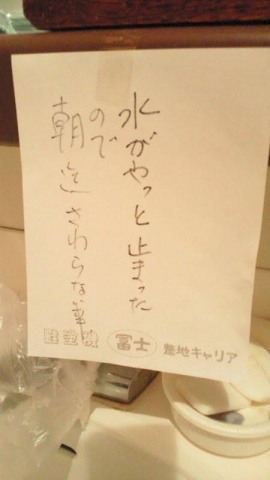 水がやっと止まった
ので
朝迄さわらな事
富士
産地キャリア